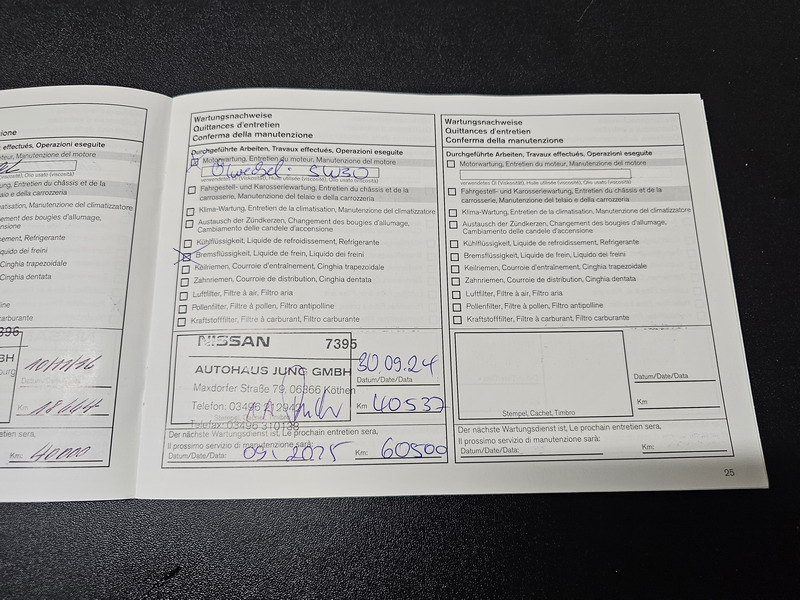 zione
effectués, Operazioni eseguite
teur, Manutenzione del motore
(viscosité), Olio usato (viscosità)
Entretien du châssis et de la
telaio e della carrozzeria
climatisation, Manutenzione del climatizzatore
ngement des bougies d'allumage,
d'accensione
sement, Refrigerante
Liquido dei freini
Cinghia trapezoidale
Cinghia dentata
carburante
396
BH
burg
10/11/16
Datum/Date/Data
Km
18044
retien sera,
Km: 40000
Wartungsnachweise
Quittances d'entretien
Conferma della manutenzione
Durchgeführte Arbeiten, Travaux effectués, Operazioni eseguite
Motorwartung, Entretien du moteur, Manutenzione del motore
Ölwechsel: 5W30
verwendetes Öl (Viskosität), Huile utilisée (viscosité), Olio usato (viscosità)
Fahrgestell- und Karosseriewartung, Entretien du châssis et de la
carrosserie, Manutenzione del telaio e della carrozzeria
Klima-Wartung, Entretien de la climatisation, Manutenzione del climatizzatore
Austausch der Zündkerzen, Changement des bougies d'allumage,
Cambiamento delle candele d'accensione
Kühlflüssigkeit, Liquide de refroidissement, Refrigerante
Bremsflüssigkeit, Liquide de frein, Liquido dei freini
Keilriemen, Courroie d'entraînement, Cinghia trapezoidale
Zahnriemen, Courroie de distribution, Cinghia dentata
Luftfilter, Filtre à air, Filtro aria
Pollenfilter, Filtre à pollen, Filtro antipolline
Kraftstofffilter, Filtre à carburant, Filtro carburante
NISSAN 7395
AUTOHAUS JUNG GMBH
Maxdorfer Straße 79, 06366 Köthen
Telefon: 03496
Stempel, Cachet, Timbro
Telefax: 03496 310138
30.09.24
Datum/Date/Data
Km 40537
Der nächste Wartungsdienst ist, Le prochain entretien sera,
Il prossimo servizio di manutenzione sarà:
Datum/Date/Data: 09.2025 Km: 60500
Wartungsnachweise
Quittances d'entretien
Conferma della manutenzione
Durchgeführte Arbeiten, Travaux effectués, Operazioni eseguite
Motorwartung, Entretien du moteur, Manutenzione del motore
verwendetes Öl (Viskosität), Huile utilisée (viscosité), Olio usato (viscosità)
Fahrgestell- und Karosseriewartung, Entretien du châssis et de la
carrosserie, Manutenzione del telaio e della carrozzeria
Klima-Wartung, Entretien de la climatisation, Manutenzione del climatizzatore
Austausch der Zündkerzen, Changement des bougies d'allumage,
Cambiamento delle candele d'accensione
Kühlflüssigkeit, Liquide de refroidissement, Refrigerante
Bremsflüssigkeit, Liquide de frein, Liquido dei freini
Keilriemen, Courroie d'entraînement, Cinghia trapezoidale
Zahnriemen, Courroie de distribution, Cinghia dentata
Luftfilter, Filtre à air, Filtro aria
Pollenfilter, Filtre à pollen, Filtro antipolline
Kraftstofffilter, Filtre à carburant, Filtro carburante
Stempel, Cachet, Timbro
Datum/Date/Data
Km
Der nächste Wartungsdienst ist, Le prochain entretien sera,
Il prossimo servizio di manutenzione sarà:
Datum/Date/Data: Km:
25